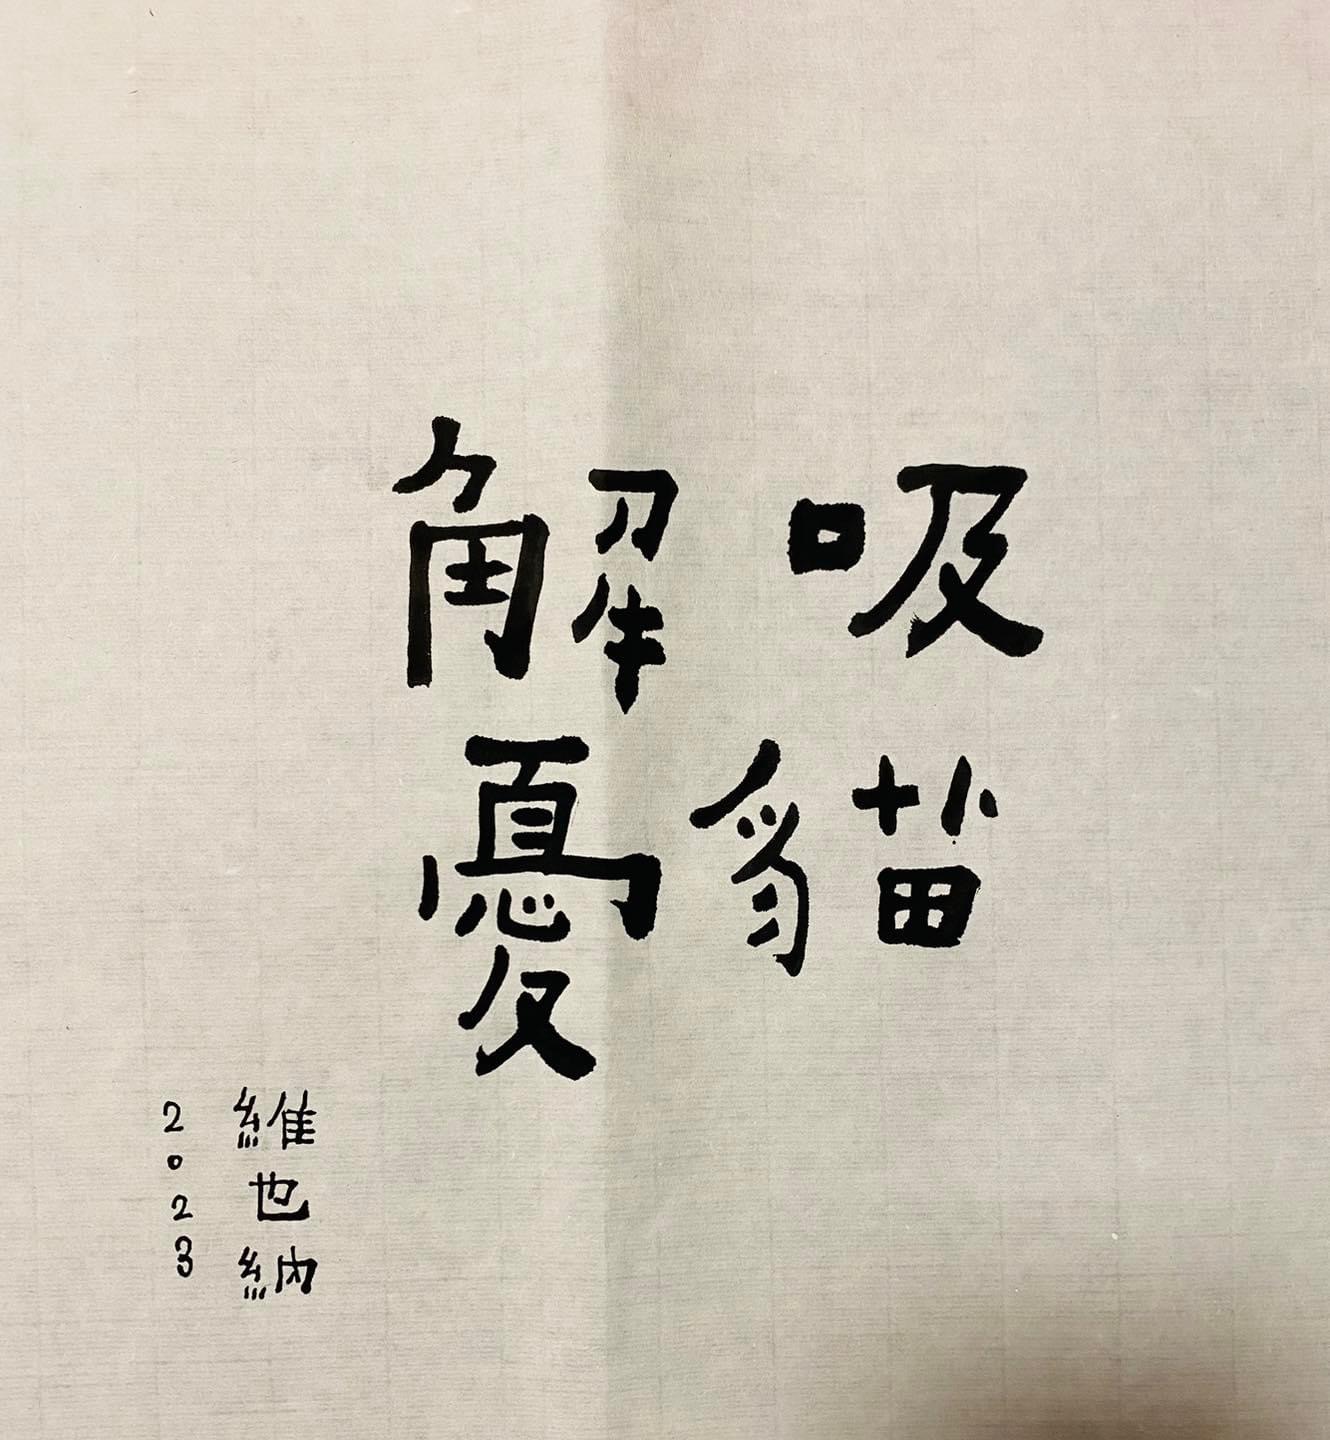 吸貓
解憂
維也納
2023